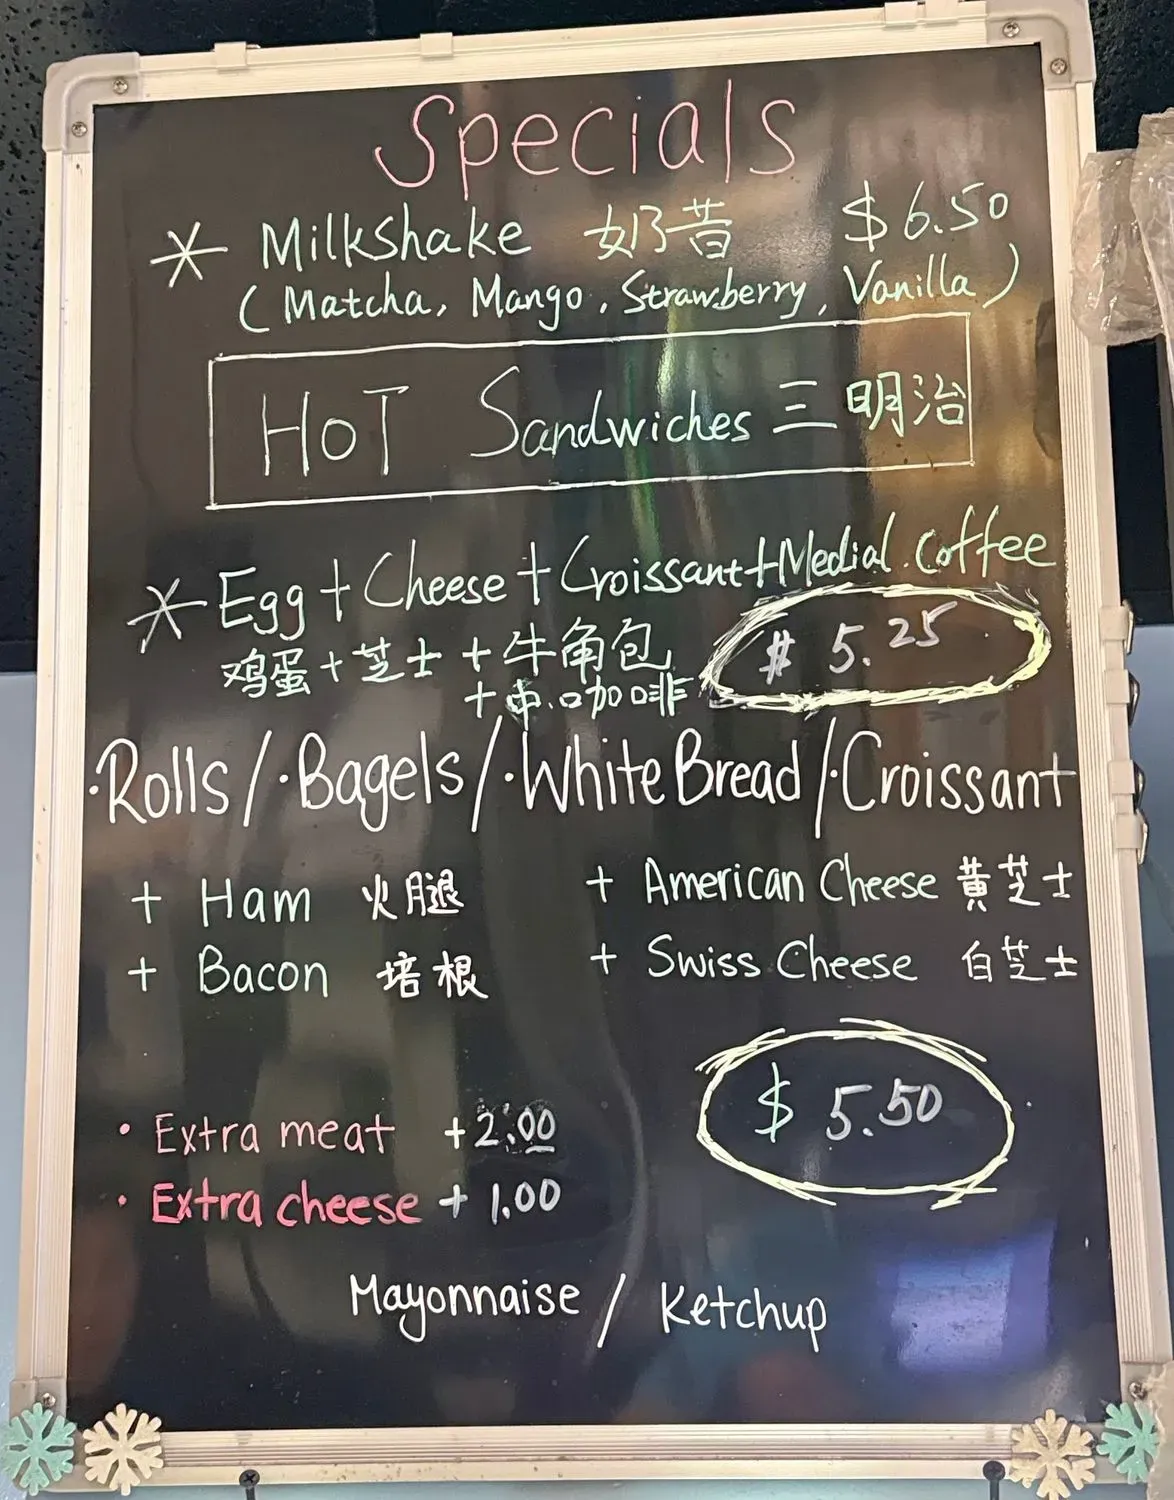 Specials
* Milkshake 奶昔 $6.50
(Matcha, Mango, Strawberry, Vanilla)
HOT Sandwiches 三明治
* Egg + Cheese + Croissant + Medial. Coffee
鸡蛋 + 芝士 + 牛角包 $ 5.25
+ 中.咖啡
·Rolls / ·Bagels / ·White Bread / ·Croissant
+ Ham 火腿 + American Cheese 黄芝士
+ Bacon 培根 + Swiss Cheese 白芝士
$ 5.50
· Extra meat +2.00
· Extra cheese + 1.00
Mayonnaise / Ketchup